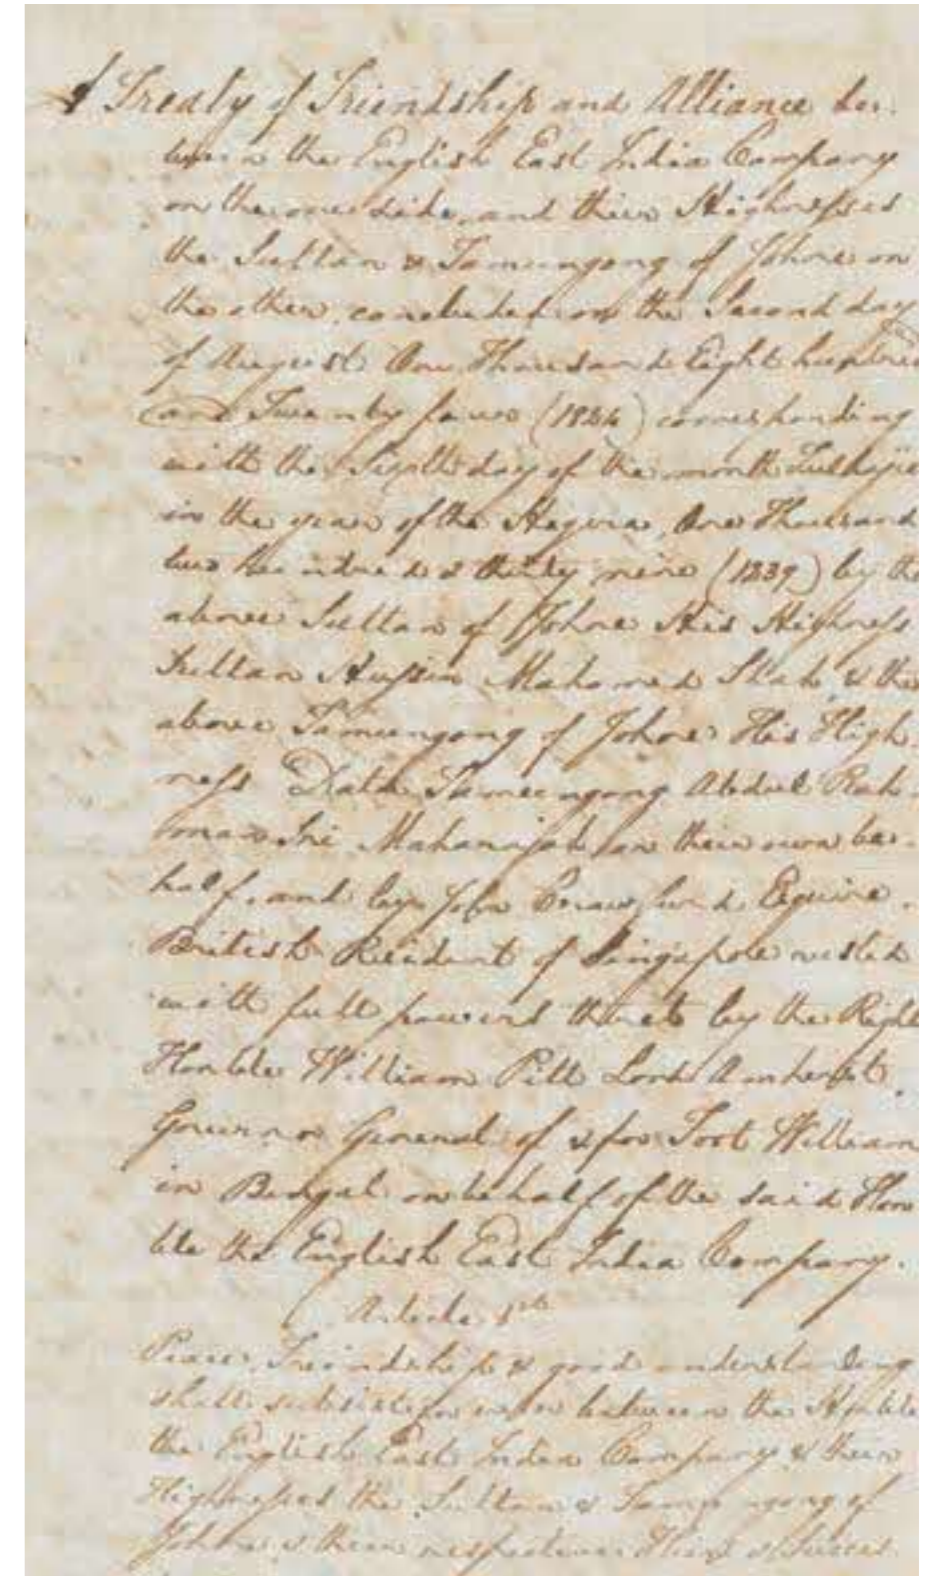 A Treaty of Friendship and Alliance be-
tween the English East India Company
on the one side, and their Highnesses
the Sultan & Tumungong of Johore on
the other, concluded on the Second day
of August One Thousand Eight hundred
and Twenty four (1824) corresponding
with the Sixth day of the month
in the year of the Hegira, One Thousand
two hundred & thirty nine (1239) by the
above Sultan of Johore His Highness
Sultan Hussin Mahomed Shah, & the
above Tumungong of Johore His High-
ness Datu Tumungong Abdul Rah-
man Sri Maharajah on their own be-
half, and by John Crawfurd Esquire.
British Resident of Singapore vested
with full powers thereto by the Right
Honble William Pitt Lord Amherst
Governor General of & for Fort William
in Bengal on behalf of the said Hon
ble the English East India Company.
Article 1st
Peace, Friendship & good understanding
shall subsist for ever between the Honble
the English East India Company & their
Highnesses the Sultan & Tumungong of
Johore & their respective Heirs & Succes